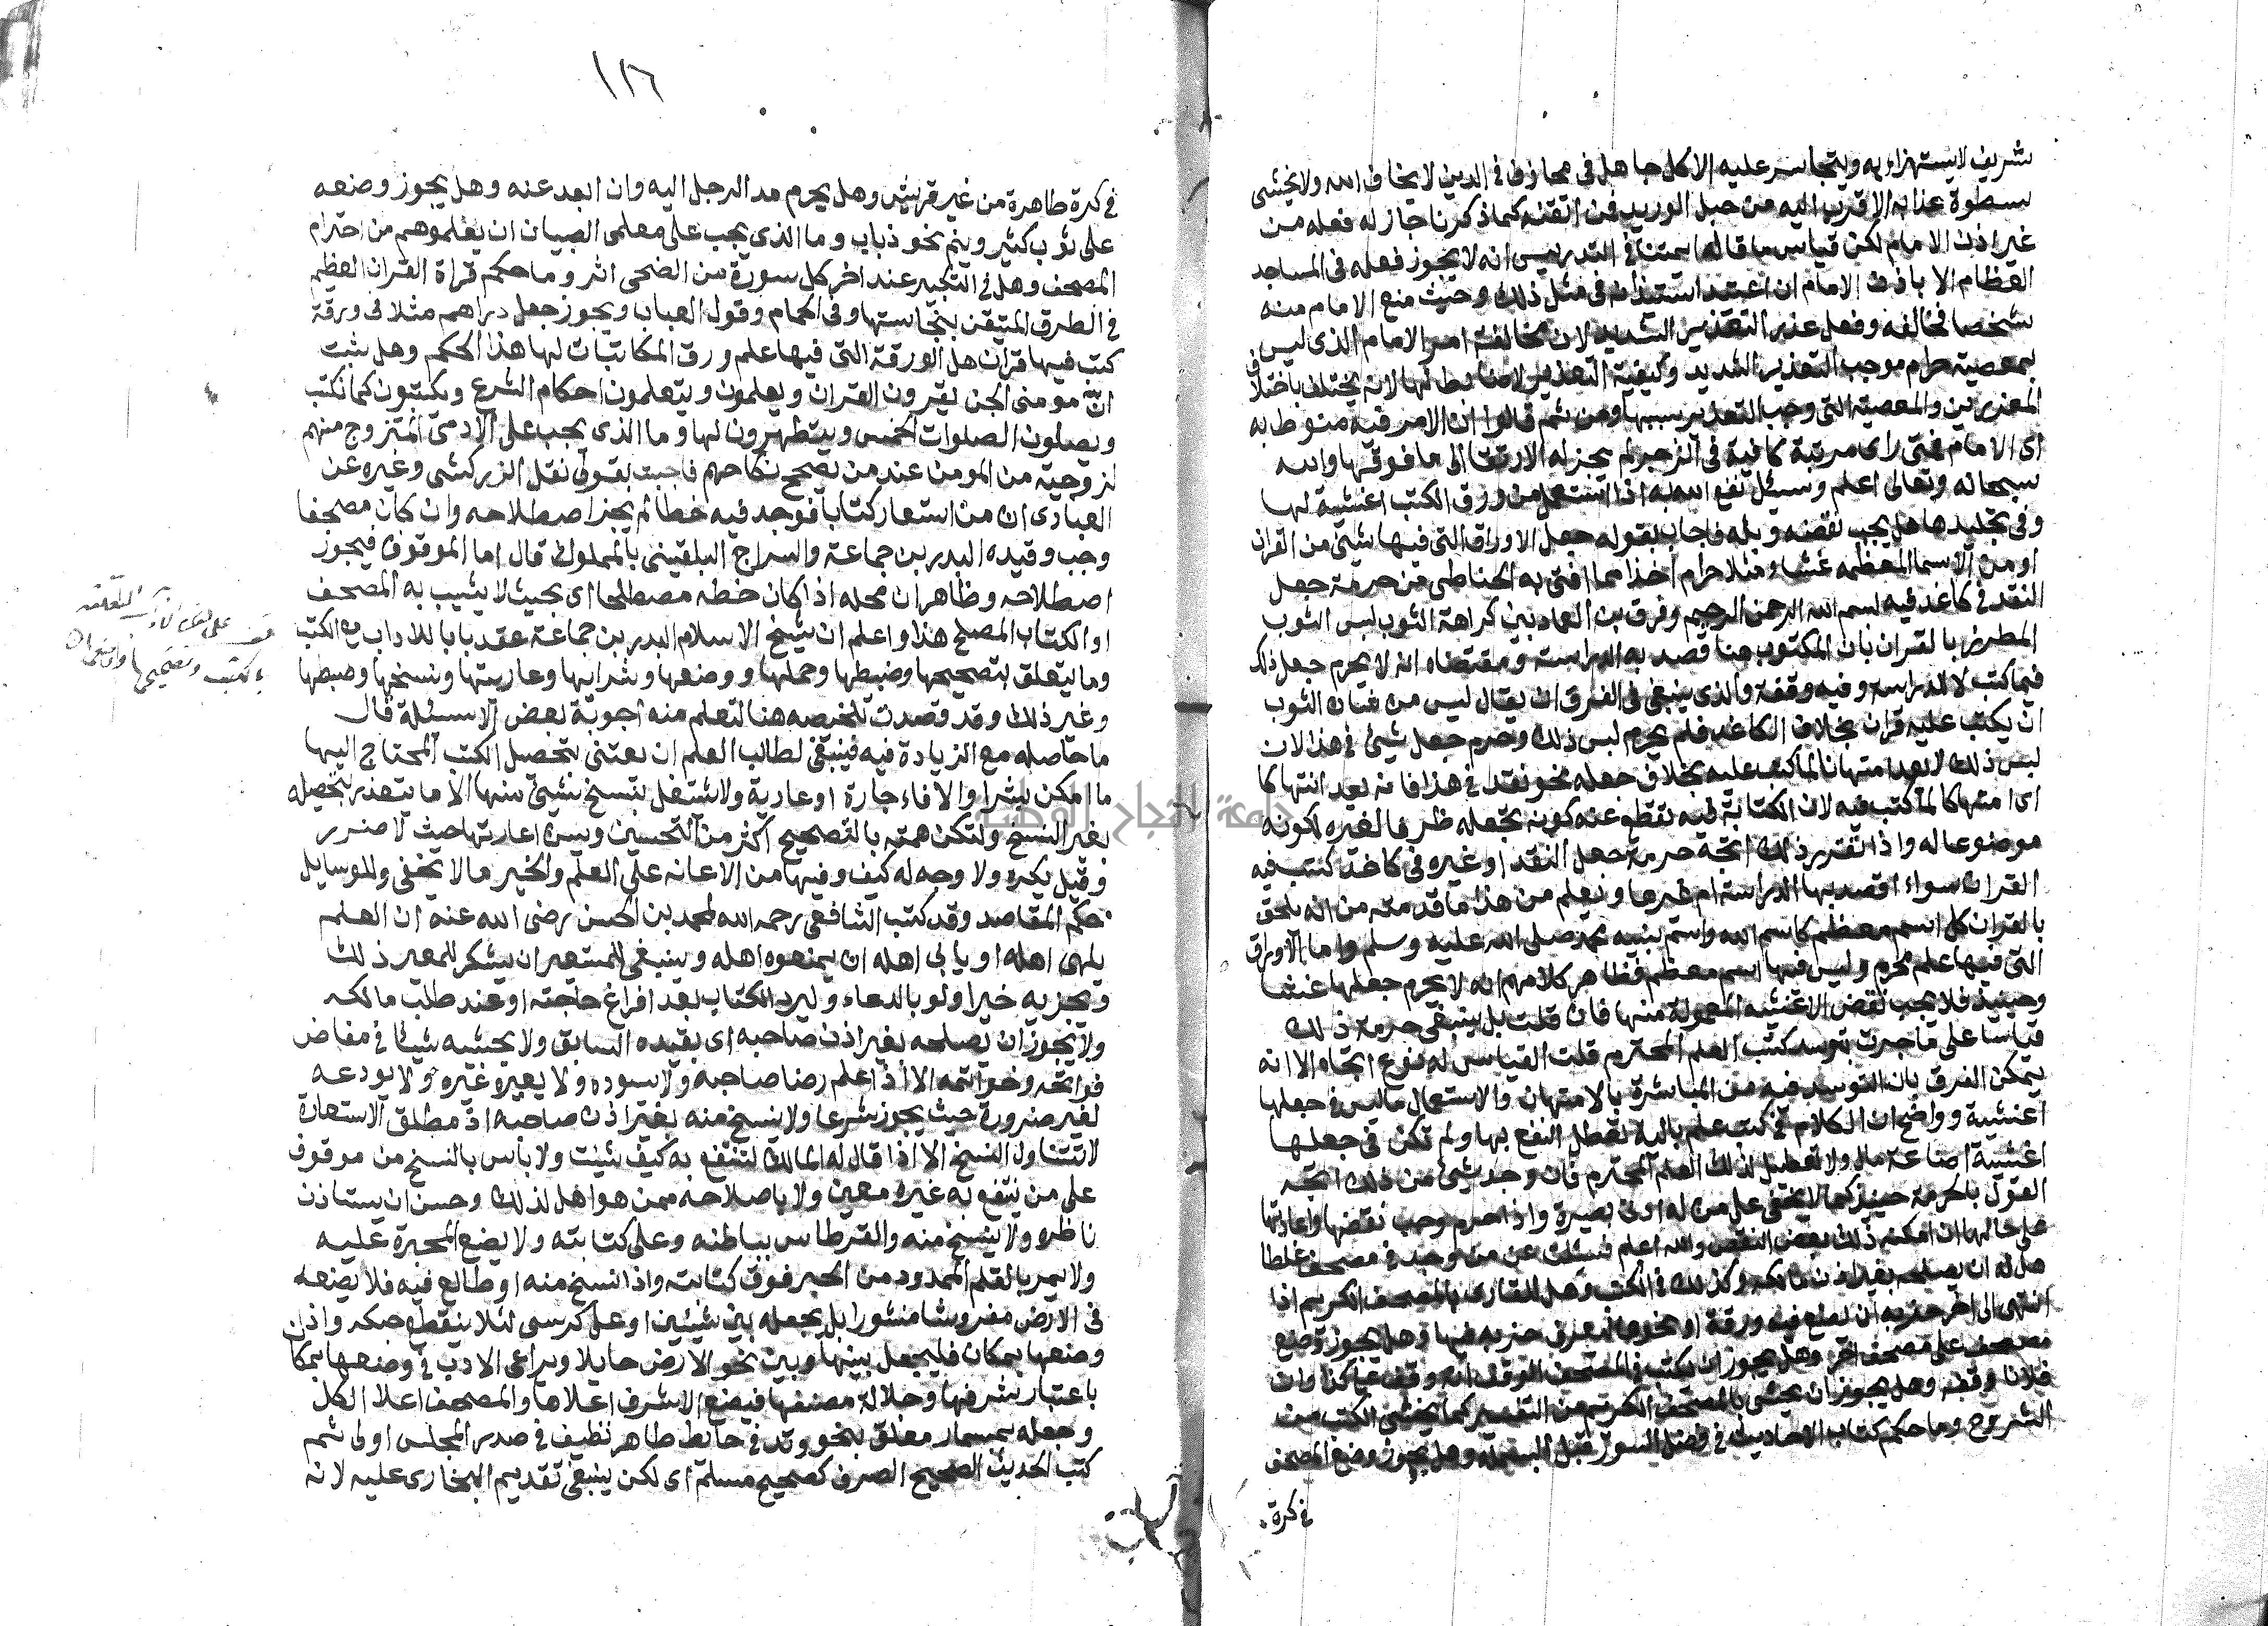 شريف لا يستهزاء به ويتجاسر عليه الا كل جاهل في مجازف في الدين لا يخاف الله ولا يخشى
سطوة عذابه الاقرب اليه من حبل الوريد فمن اتقنه كما ذكرنا جاز له فعله من
غير اذن الامام لكن قياس ما قاله ايمتنا في التدريس انه لا يجوز فعله في المساجد
العظام الا باذن الامام ان اعتيد استيذانه في مثل ذلك وحيث منع الامام منه
شخصا فخالفه وفعل عذر التعذير الشديد لان مخالفة امر الامام الذي ليس
بمعصية حرام موجب التعذير الشديد وكيفية التعذير لا ضابط لها لانه يختلف باختلاف
المعذرين والمعصية التي وجب التعذير بسببها ومن ثم قالوا ان الامر فيه منوط به
اى الامام فمتى راى مرتبة كافية في الزجر لم يجز له الارتقا الى ما فوقها والله
سبحانه وتعالى اعلم وسئل نفع الله به اذا استعمل من ورق الكتب اغشية لها
وفي تجليدها هل يجب نقضه وبله فاجاب بقوله جعل الاوراق التي فيها شيء من القران
او من الاسما المعظمه غشاء مثلا حرام اخذا مما افتى به الحناطي من حرمة جعل
النقد في كاغد فيه بسم الله الرحمن الرحيم وفرق بن العماد بين كراهة الثوب لبس الثوب
المطرز بالقران بان المكتوب هنا قصد به الدراسة ومقتضاه انه لا يحرم جعل ذلك
فيما كتب لا للدراسة وفيه وقفة والذي ينبغي في الفرق ان يقال ليس من شان الثوب
ان يكتب عليه قران بخلاف الكاغد فلم يحرم لبس ذلك وحرم جعل شيئ في هذا لان
لبس ذلك لا يعد امتهانا لما كتب عليه بخلاف جعله نحو نقد في هذا فانه يعد انتهاكا
اى امتهاكا لما كتب فيه لان الكتابة فيه تقطع عنه كونه تجعله ظرفا لغيره لكونه
موضوعا له واذا تقرر ذلك اتجه حرمة جعل النقد او غيره في كاغد كتب فيه
القران سواء اقصد بها الدراسة ام غيرها ويعلم من هذا ما قدمته من انه يلحق
بالقران كل اسم معظم كاسم الله واسم نبيه محمد صلى الله عليه وسلم واما الاوراق
التي فيها علم محرم وليس فيها اسم معظم فظاهر كلامهم انه لا يحرم جعلها غشا
وحينيذ فلا يجب نقض الاغشيه المعمولة منها فان قلت بل ينبغي حرمة ذلك
قياسا على ما جرت توسد كتب العلم المحترم قلت القياس له نوع اتجاه الا انه
يتمكن الفرق بان التوسد فيه من المباشرة بالامتهان والاستعمال ما ليس في جعلها
اغشية وواضح ان الكلام في كتب علم بالية تعطل النفع بها ولم تكن في جعلها
اغشية اضاعة مال ولا تعطيل لذلك العلم المحترم فان وجد شيئ من ذلك اتجه
القول بالحرمة حينيذ كما لا يخفى على من له ادنى بصيرة واذا حرم وجب نقضها واعادتها
على حالها ان امكن ذلك بعض النقص والله اعلم فسئلت عن من وجد في مصحف غلطا
هل له ان يصلحه بغير اذن مالكه وكذلك في الكتب وهل للقارى بالمصحف الكريم اذا
انتهى الى اخر حزبه ان يضع فيه ورقة او نحوها ليعرف حزبه فيها وهل يجوز وضع
مصحف على مصحف اخر وهل يجوز ان يكتب في المصحف الموقوف انه وقف على كذا وان
فلانا وقفه وهل يجوز ان يحشى بالمصحف الكريم من التفسير كما يحشى الكتب من
الشروح وما حكم كتاب الاحاديث في فضل السور قبل البسملة وهل يجوز وضع المصحف
في كرة
١١٦
في كرة طاهرة من غير قريش وهل يحرم مد الرجل اليه وان ابعد عنه وهل يجوز وضعه
على ثوب كثير وينم نحو ذباب وما الذي يجب على معلمى الصبيان ان يعلموهم من احترام
المصحف وهل في التكبير عند اخر كل سورة من الضحى اثر وما حكم قراة القران العظيم
في الطرق المتيقن بنجاستها وفي الحمام وقول العباب ويجوز جعل دراهم مثلا في ورقة
كتب فيها قران هل الورقة التي فيها علم ورق المكاتبات لها هذا الحكم وهل يثبت
ان مومنى الجن يقرون القران ويعلمون ويتعلمون احكام الشرع ويكتبون كما نكتب
ويصلون الصلوات الخمس ويتطهرون لها وما الذي يجب على الادمى المتزوج منهم
لزوجته من المومن عند من يصحح نكاحهم فاجبت بقولى نقل الزركشى وغيره عن
العبادى ان من استعار كتابا فوجد فيه خطا لم يجز اصطلاحه وان كان مصحفا
وجب وقيده البدر بن جماعة والسراج البلقينى بالمملوك قال اما الموقوف فيجوز
اصطلاحه وظاهر ان محله اذا كان خطه مصطلحا اى بحيث لا يشيب به المصحف
او الكتاب المصلح هذا واعلم ان شيخ الاسلام البدر بن جماعة عقد بابا للاداب مع الكتب
وما يتعلق بتصحيحها وضبطها وحملها ووضعها وشرائها وعاريتها ونسخها وضبطها
وغير ذلك وقد قصدت تلخيصه هنا لتعلم منه اجوبة بعض الاسئلة قال
ما حاصله مع الزيادة فيه فينبغي لطالب العلم ان يعتنى بتحصيل الكتب المحتاج اليها
ما امكن بشرا والا فاجارة او عارية ولا يشتغل بنسخ شيئ منها الا ما يتعذر تحصيله
بغير النسخ ولتكن همته بالتصحيح اكثر من التحسين ويسن اعارتها حيث لا ضرر
وقيل يكره ولا وجه له كيف وفيها من الاعانه على العلم والخير ما لا يخفى وللوسايل
حكم المقاصد وقد كتب الشافعي رحمه الله لمحمد بن الحسن رضى الله عنه ان العلم
يلهى اهله او يابى اهله ان يمنعوه اهله وينبغي للمستعير ان يشكر للمعير ذلك
ويجزيه خيرا ولو بالدعاء وليرد الكتاب بعد افراغ حاجته او عند طلب مالكه
ولا يجوز ان يصلحه بغير اذن صاحبه اى بقيده السابق ولا يحشيه شيئا في مفاض
فواتحه وخواتمه الا اذا علم رضا صاحبه ولا يسوده ولا يعيره غيره ولا يودعه
لغير ضرورة حيث يجوز شرعا ولا ينسخ منه بغير اذن صاحبه اذ مطلق الاستعارة
لا تتناول النسخ الا اذا قال له المالك لتنتفع به كيف شيت ولا بأس بالنسخ من موقوف
على من ينتفع به غيره معين ولا باصلاحه ممن هو اهل لذلك وحسن ان يستاذن
ناظره ولا ينسخ منه والقرطاس بباطنه وعلى كتابته ولا يضع المحبرة عليه
ولا يمر بالقلم الممدود من الحبر فوق كتابته واذا نسخ منه او طالع فيه فلا يضعه
في الارض مفروشا منشورا بل يجعله بين شيئين او على كرسى لئلا ينقطع حبكه واذن
وضعها بمكان فليجعل بينها وبين نحو الارض حايلا ويراعى الادب في وضعها بمكا
باعتبار شرفها وجلالة مصنفها فيضع الاشرف اعلاها والمصحف اعلا الكل
وجعله بمسمار معلق بنحو وتد في حايط طاهر نظيف في صدر المجلس اولى ثم
كتب الحديث الصحيح الصرف كصحيح مسلم اى لكن ينبغي تقديم البخارى عليه لانه
جامعة النجاح الوطنية